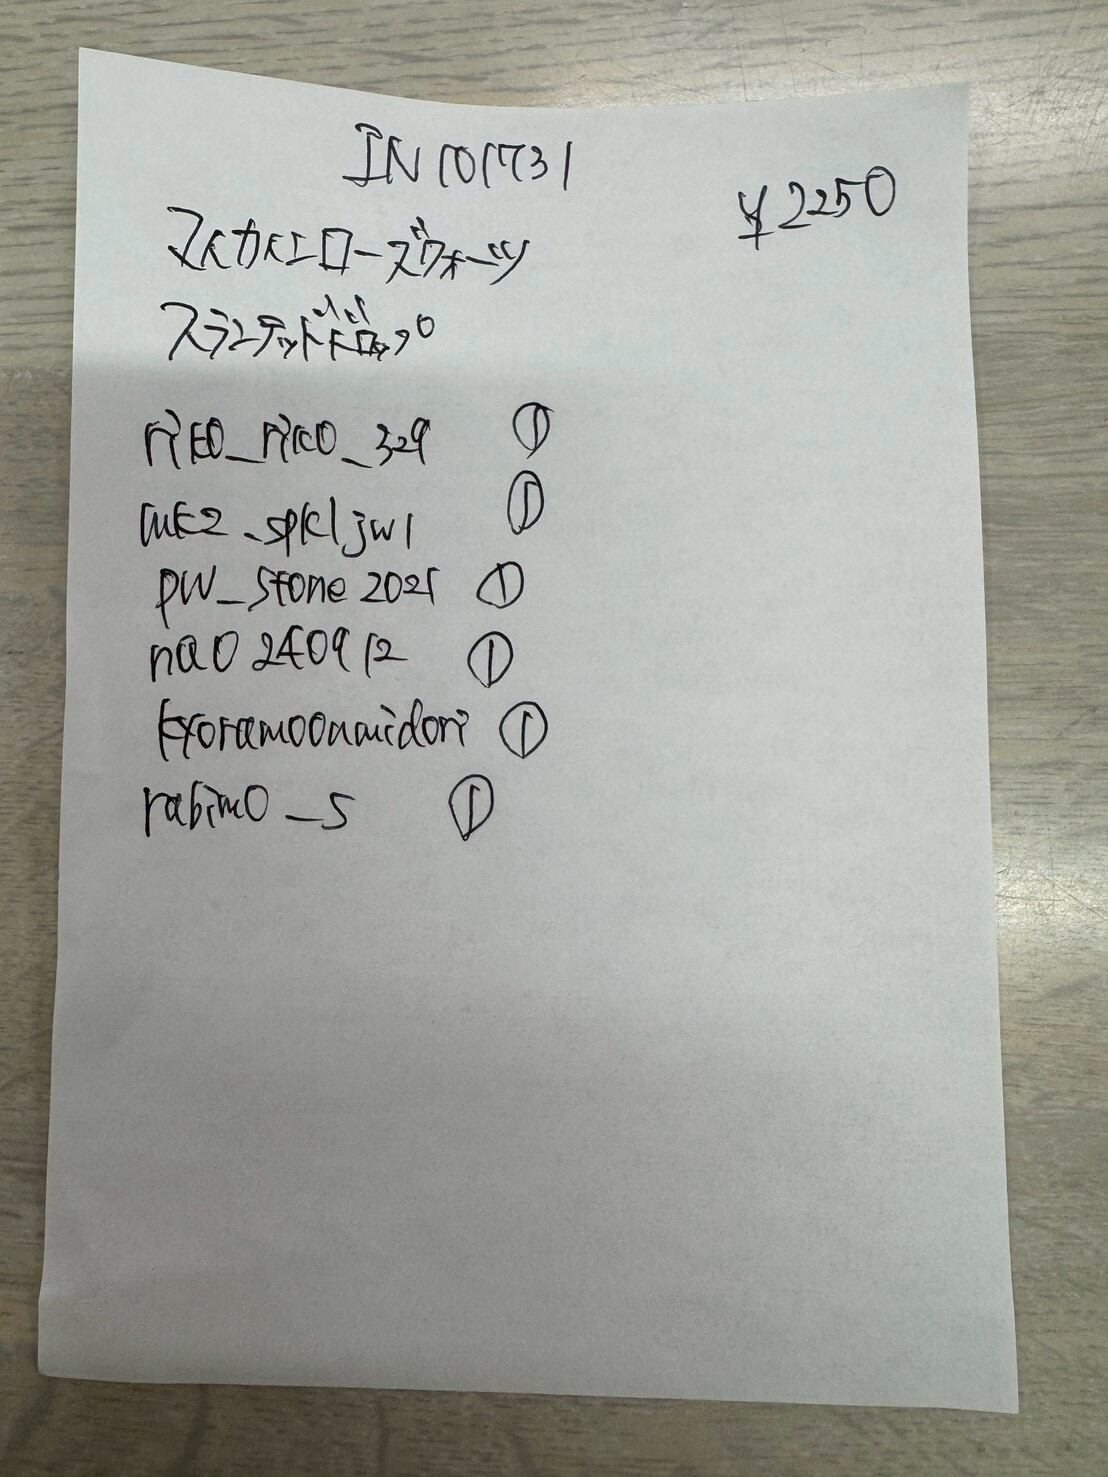 IN101731
¥2250
マイカイエローズウォーツ
スランテッドドロップ
riko_riko_329 ①
muk2_spkljw1 ①
pw_stone2021 ①
nao240912 ①
kyoramoonmidori ①
rabimo_s ①